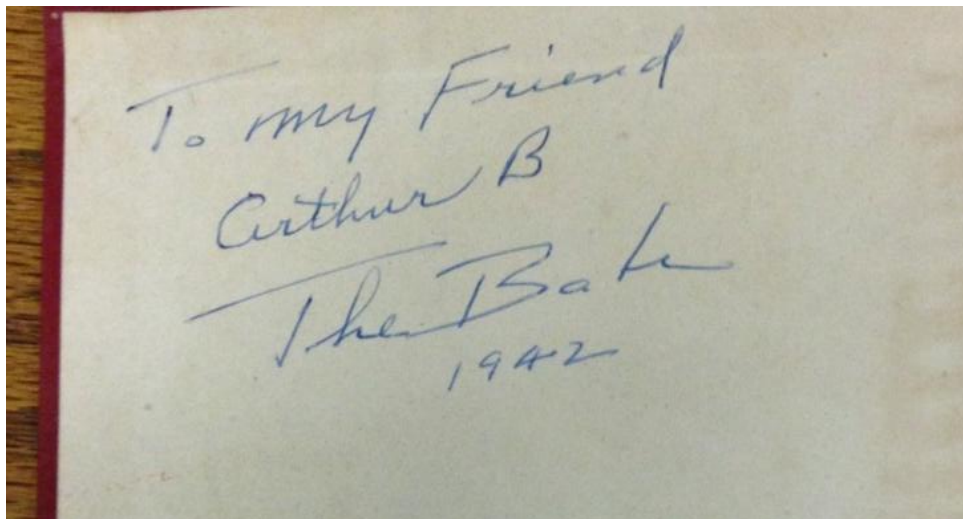 To my Friend
Arthur B
The
1942